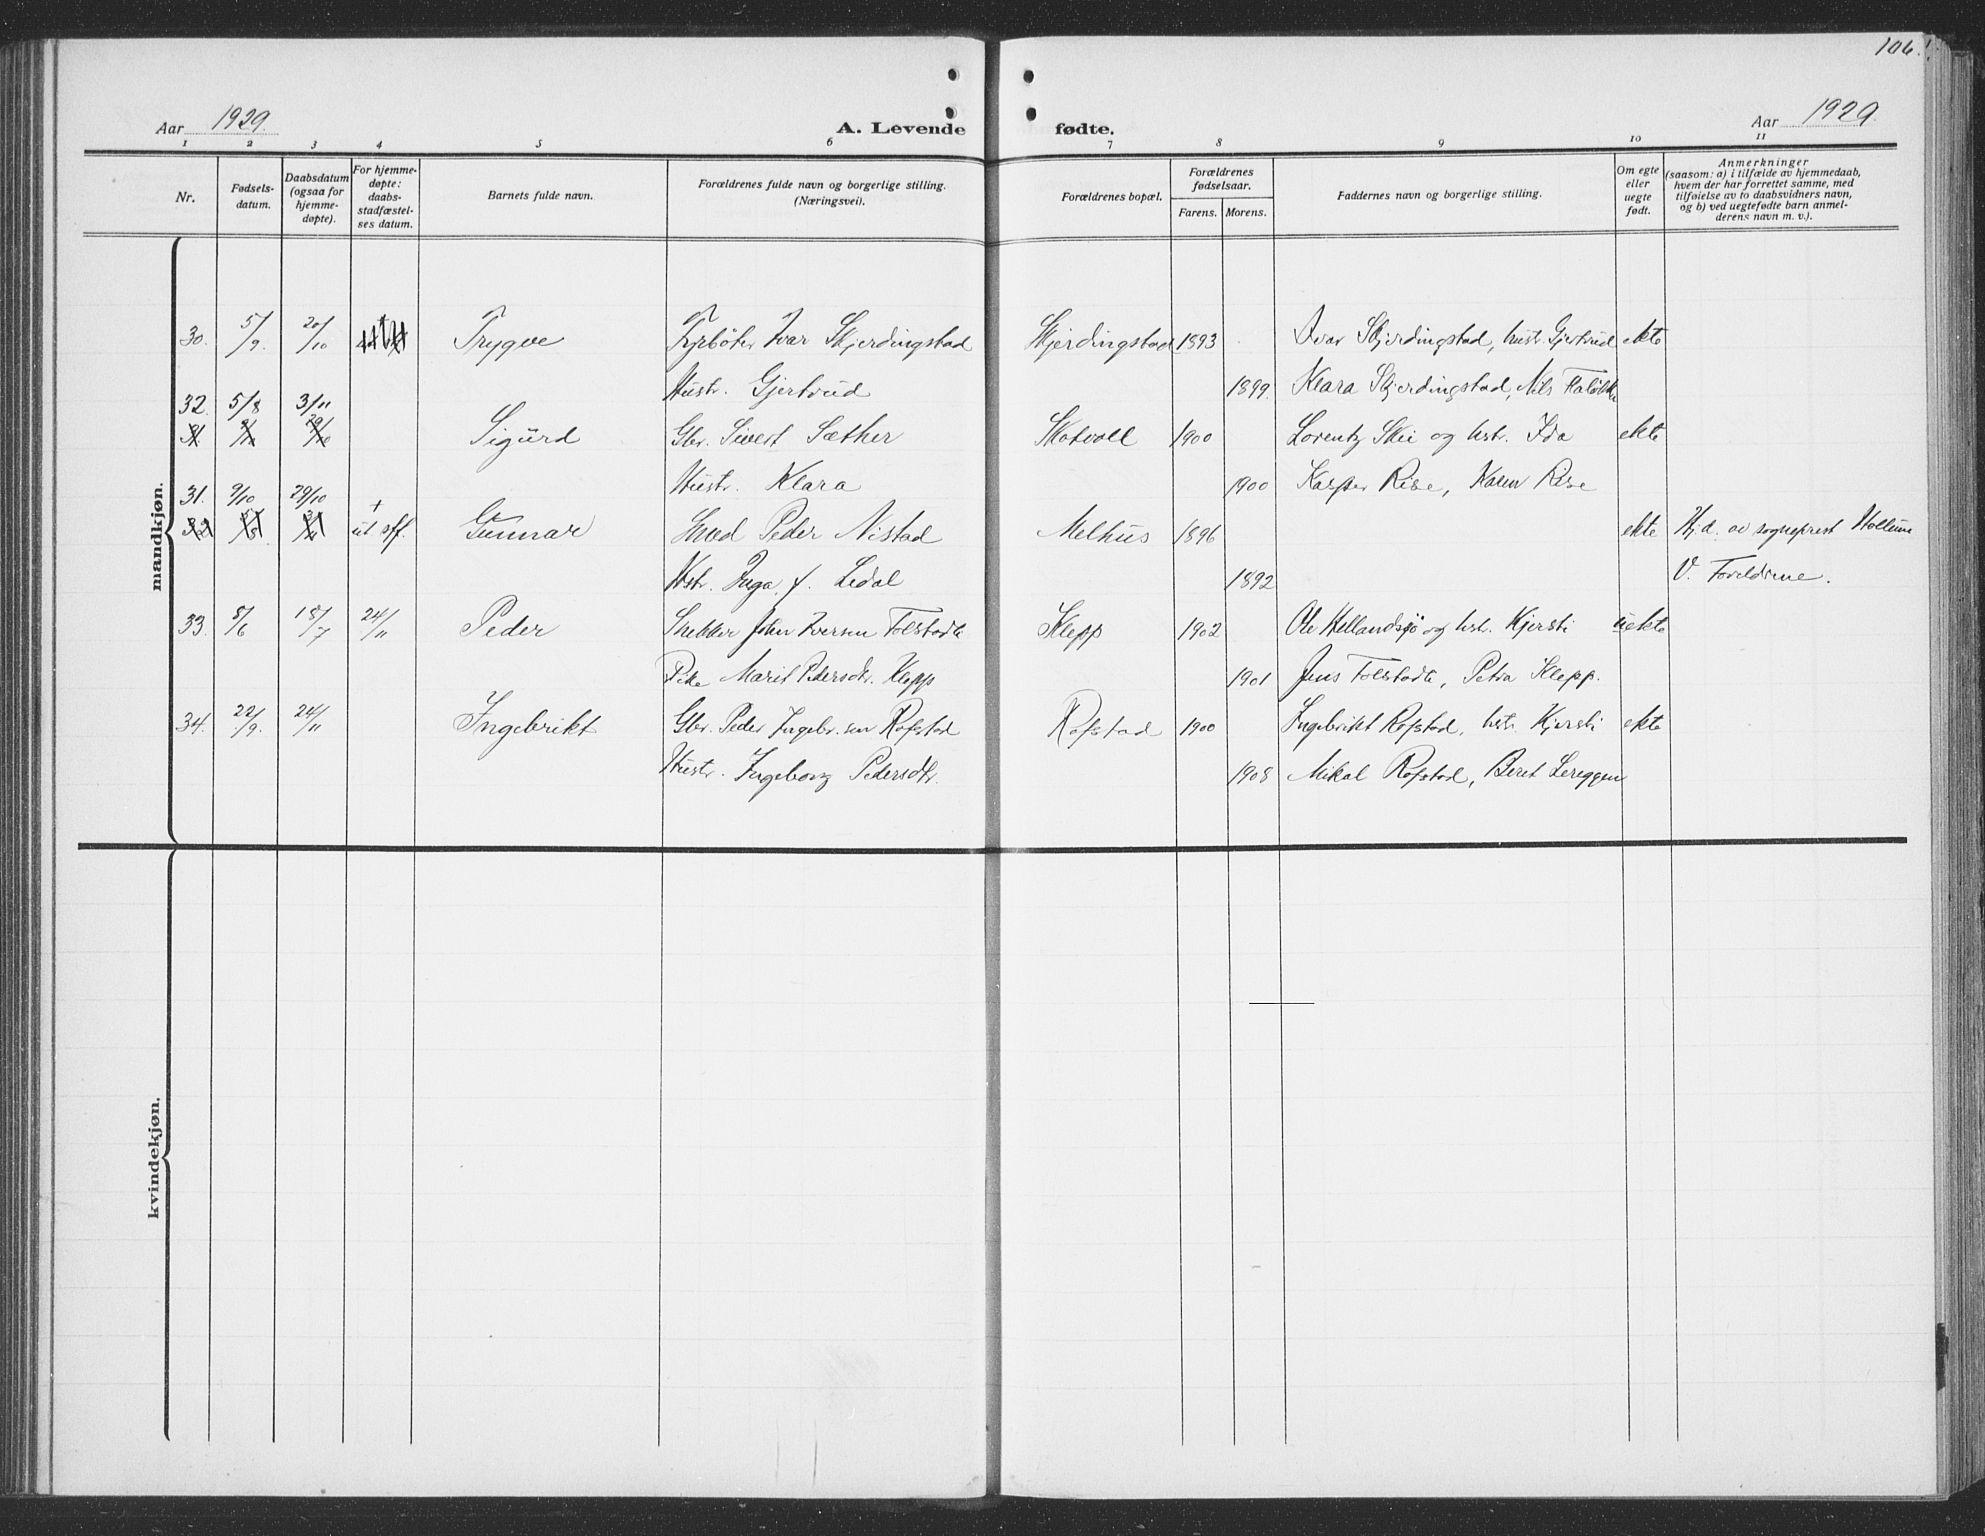 106.
Aar 1929. A. Levende fødte. Aar 1929.
1 2 3 4 5 6 7 8 9 10 11
Nr.
Fødsels-
datum.
Daabsdatum
(ogsaa for
hjemme-
døpte).
For hjemme-
døpte:
daabs-
stadfæstel-
ses datum.
Barnets fulde navn.
Forældrenes fulde navn og borgerlige stilling.
(Næringsvei).
Forældrenes bopæl.
Forældrenes
fødselsaar.
Farens. Morens.
Faddernes navn og borgerlige stilling.
Om egte
eller
uegte
født.
Anmerkninger
(saasom: a) i tilfælde av hjemmedaab,
hvem der har forrettet samme, med
tilføielse av to daabsvidners navn,
og b) ved uegtefødte barn anmel-
derens navn m. v.).
mandkjøn.
30. 5/9. 20/10 Trygve Fyrbøter Ivar Skjerdingstad Skjerdingstad 1893 Ivar Skjerdingstad, hustr. Gjertrud ekte
Hustr. Gjertrud 1899. Klara Skjerdingstad, Nils
32. 5/8 3/11
Sigurd Gbr. Sivert Sæther Skotvoll 1900 Lorentz Skei og hstr. Ida ekte
Hustr. Klara 1900 Kasper Rise, Karen Rise
31. 9/10 29/10
ut stf. Gunnar Smed Peder Nistad Melhus 1896 ekte Hj.d. av sogneprest Hollum
Hstr. Inga f. Ledal 1892 V. Foreldrene.
33. 8/6 18/7 24/11 Peder Snekker John Iversen Tolstadt Klepp 1902 Ole Hellandsjø og hstr. Kjersti uekte
Pike Marit Pedersdtr. Klepp 1901 Jens Tolstadt, Petra Klepp.
34. 22/9. 24/11 Ingebrikt Gbr. Peder Ingebr.sen Rofstad Rofstad 1900 Ingebrikt Rofstad, hstr. Kjersti ekte
Hustr. Ingeborg Pedersdtr. 1908 Mikal Rofstad, Beret Lereggen
kvindekjøn.